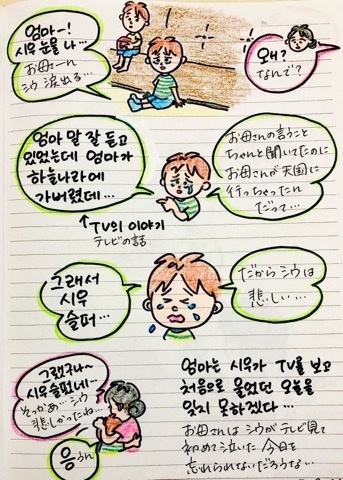 엄마~!
시우 눈물 나...
お母さーん
シウ 涙出る...
왜?
なんで?
엄마 말 잘 듣고
있었는데 엄마가
하늘나라에
가버렸데...
お母さんの言うこと
ちゃんと聞いてたのに
お母さんが天国に
行っちゃったん
だって...
↑
TV의 이야기
テレビの話
그래서
시우
슬퍼...
だからシウは
悲しい...
그랬구나~
시우슬펐네...
そっかぁ...シウ
悲しかったね...
응 うん
엄마는 시우가 TV를 보고
처음으로 울었던 오늘을
잊지 못하겠다...
お母さんはシウがテレビ見て
初めて泣いた今日を
忘れられないだろうな...